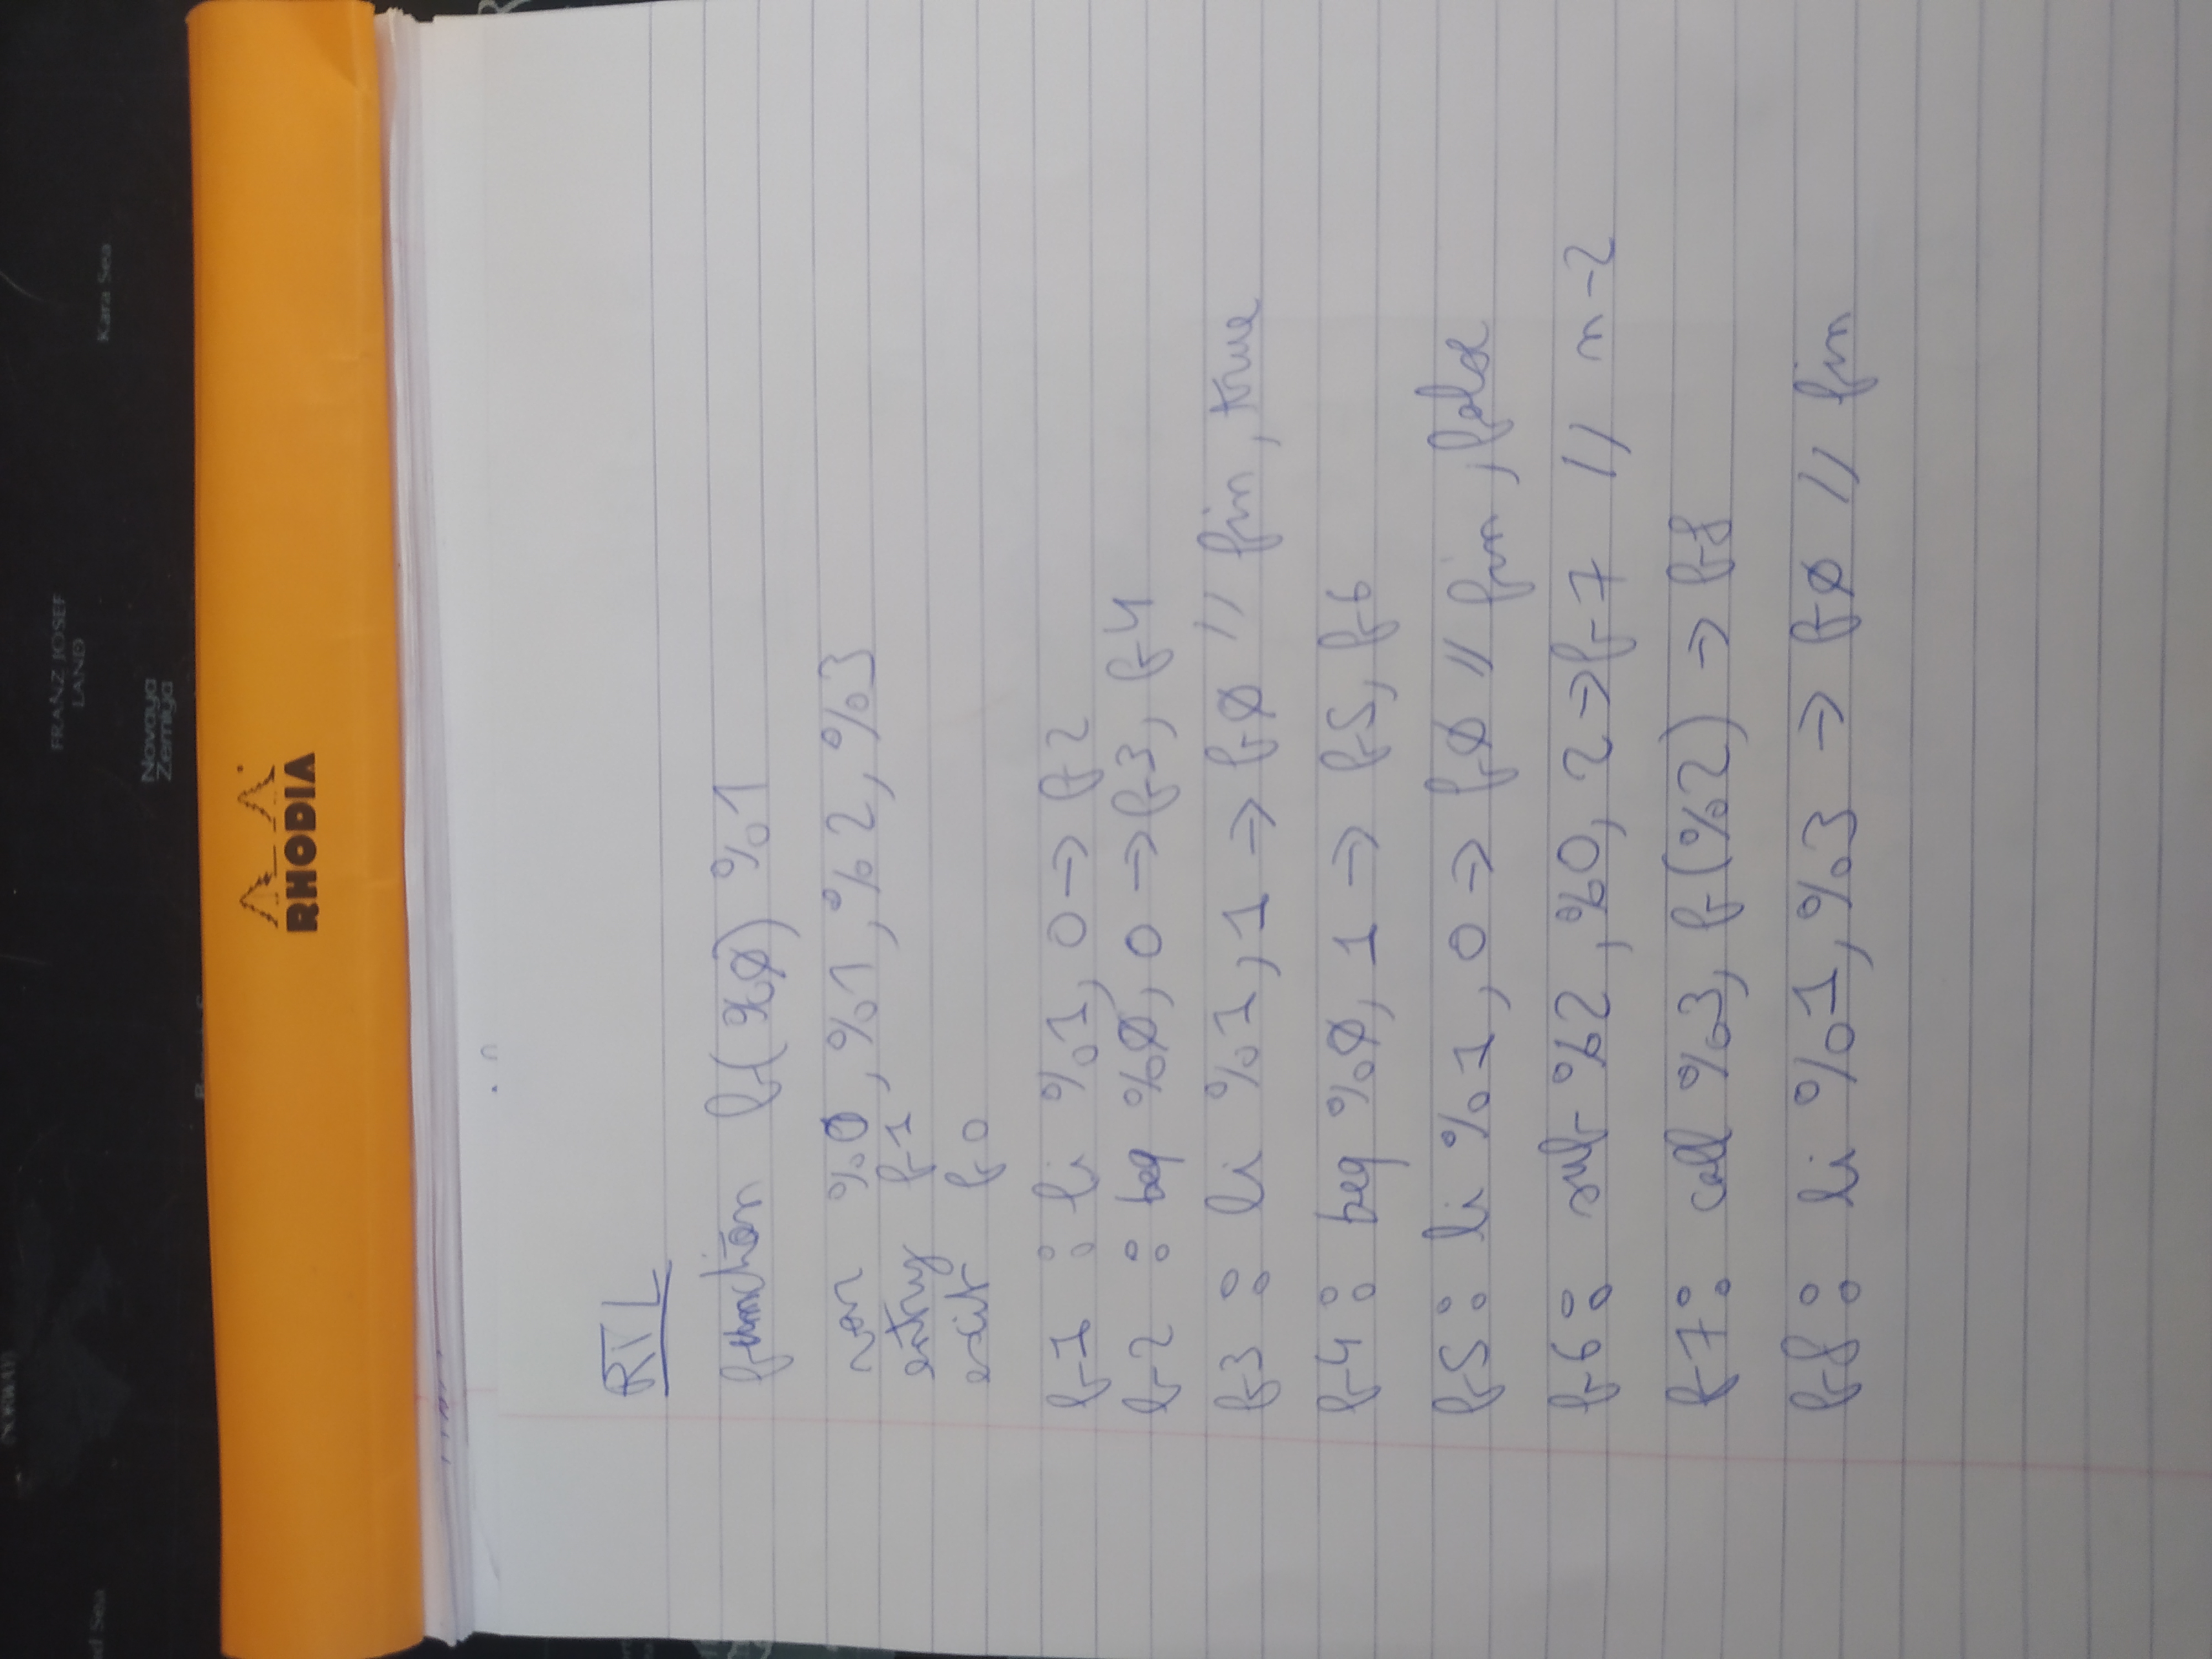 (NORWAY)
FRANZ JOSEF
LAND
Kara Sea
Novaya
Zemlya
RHODIA
RTL
function f(%0) %1
var %0, %1, %2, %3
entry f1
exit f0
f1 : li %1, 0 → f2
f2 : beq %0, 0 → f3, f4
f3 : li %1, 1 → f0 // fin, true
f4 : beq %0, 1 → f5, f6
f5 : li %1, 0 → f0 // fin, false
f6 : sub %2, %0, 2 → f7 // n-2
f7 : call %3, f(%2) → f8
f8 : li %1, %3 → f0 // fin